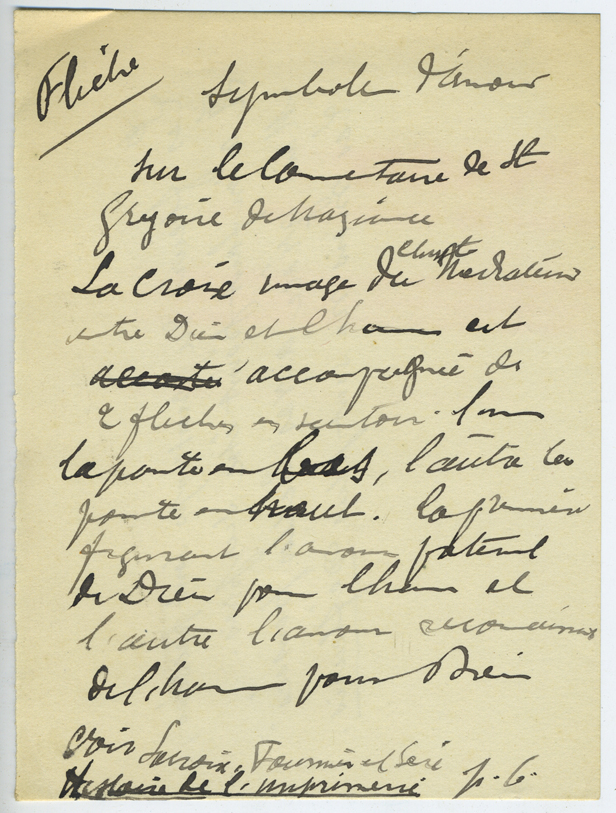 Flèche
Symbole d'amour
sur le Commentaire de St
Grégoire de Naziance
La Croix image du Christ Mediateur
entre Dieu et l'homme est
accosté accompagnée de
2 flèches en sautoir. L'une
la pointe en bas, l'autre la
pointe en haut. La première
figurant l'amour paternel
de Dieu pour l'homme et
l'autre l'amour reconnaissant
de l'homme pour Dieu
Voir Lacroix, Fournier et Seré
Histoire de l'imprimerie p. 6.